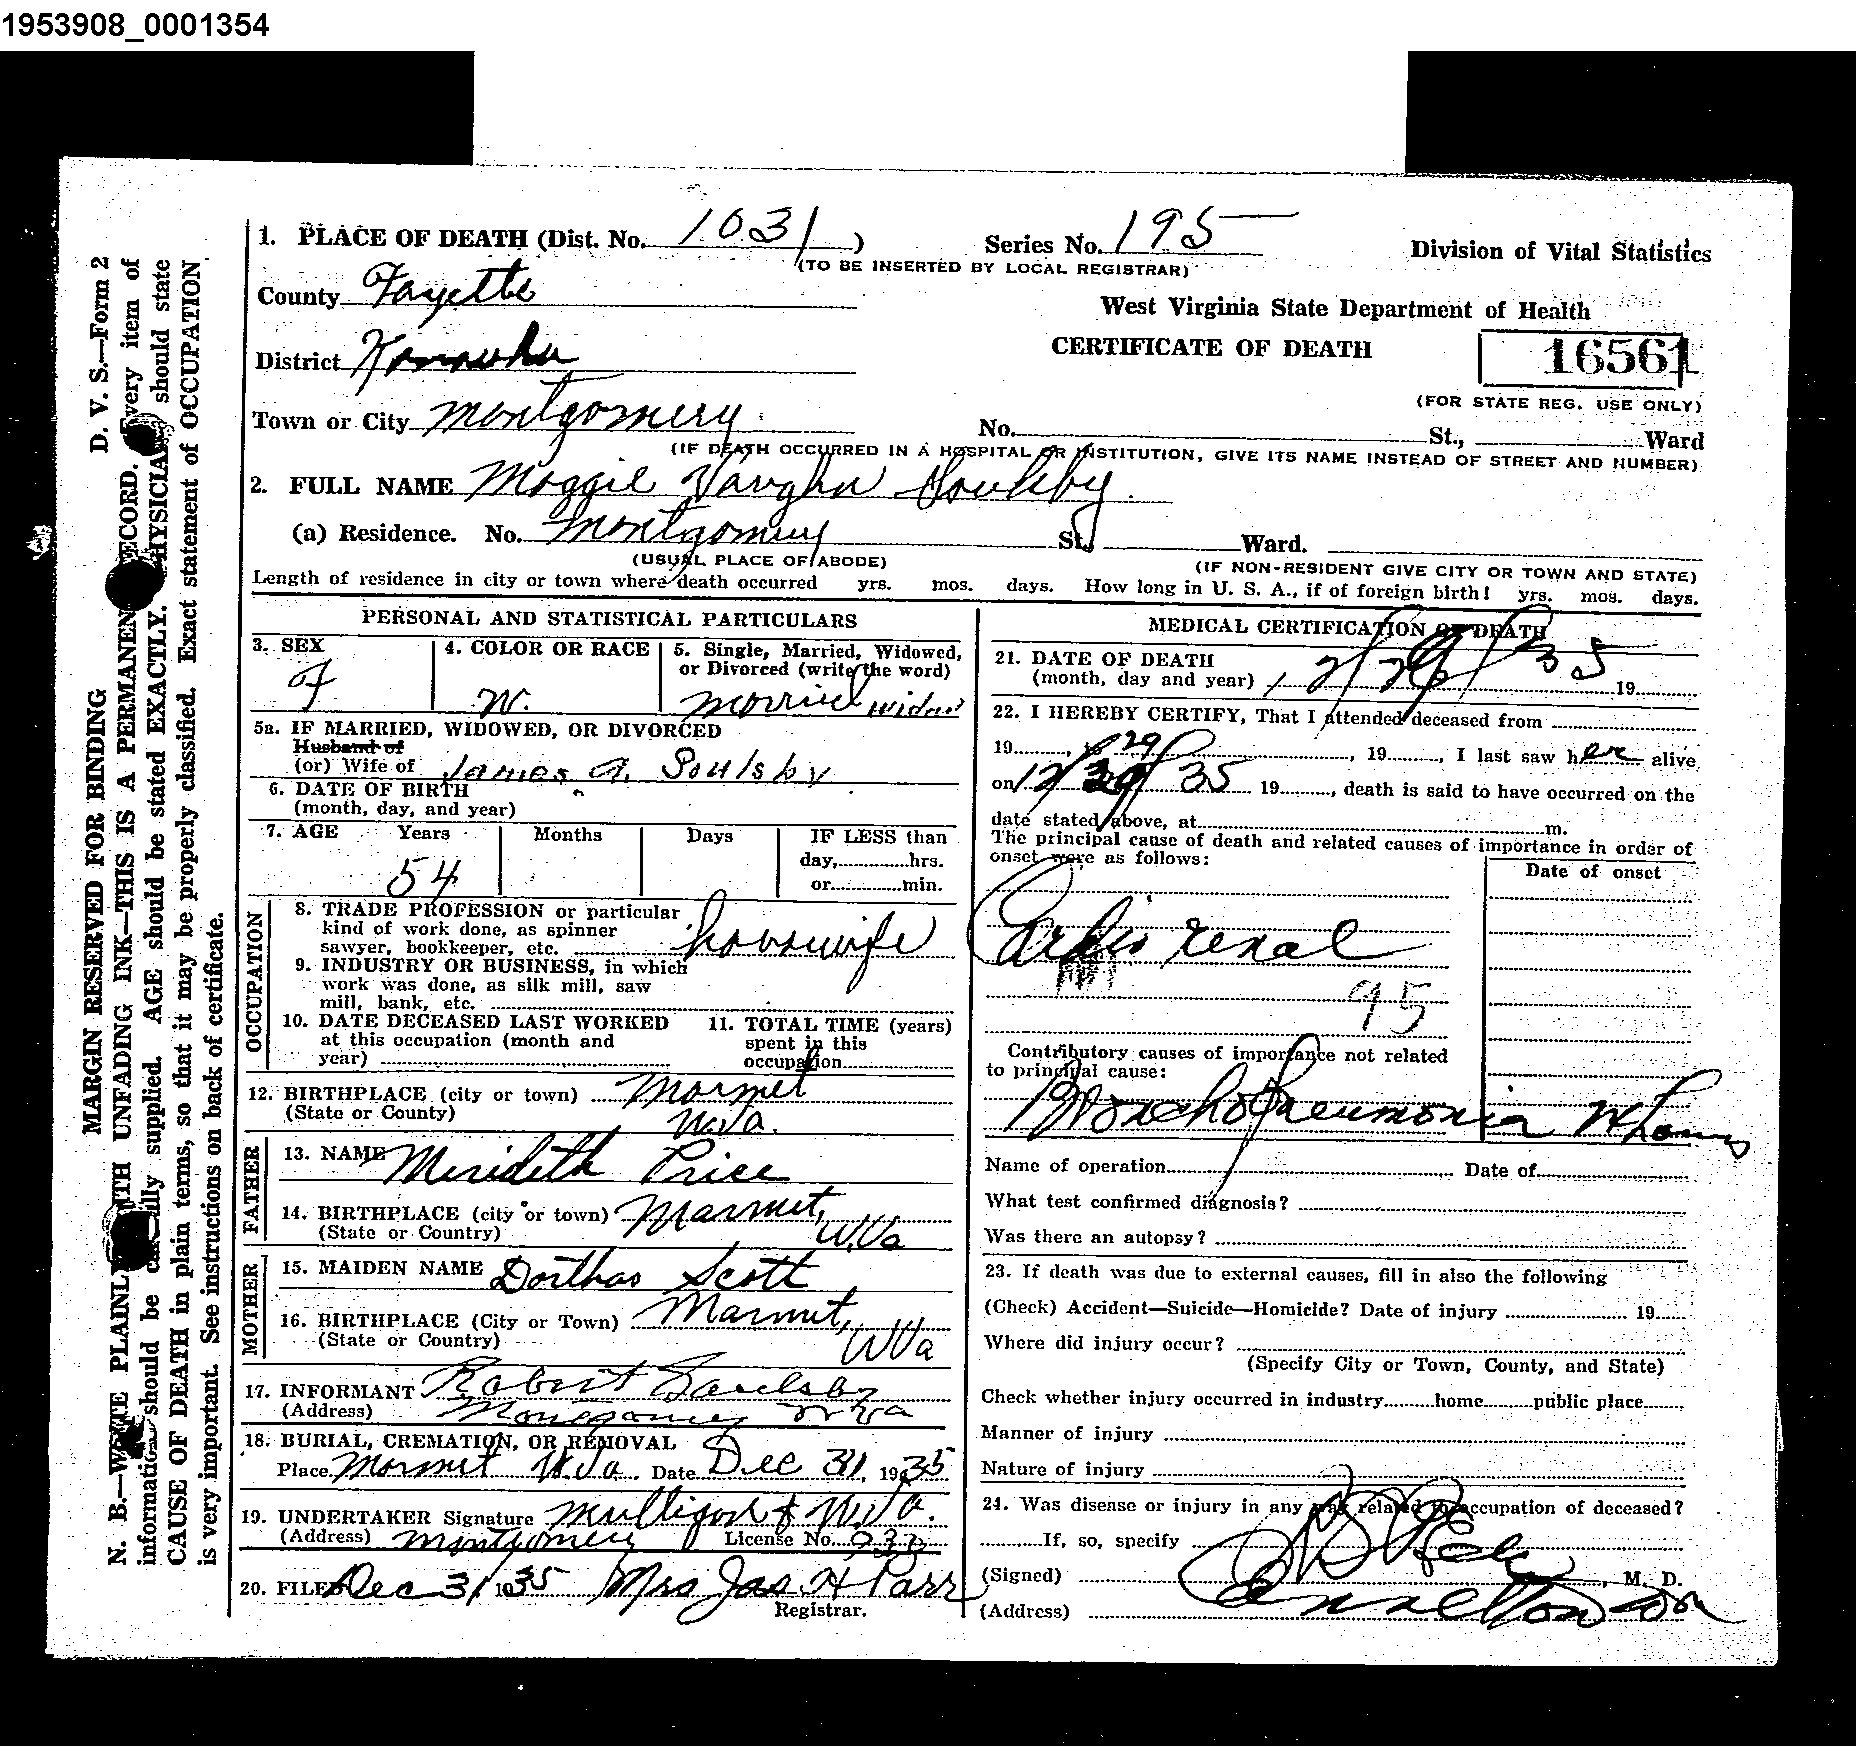 1953908_0001354
1. PLACE OF DEATH (Dist. No. 1031) Series No. 195 Division of Vital Statistics
(TO BE INSERTED BY LOCAL REGISTRAR)
County Fayette
West Virginia State Department of Health
District Kanawha
CERTIFICATE OF DEATH 16561
(FOR STATE REG. USE ONLY)
Town or City Montgomery No. St., Ward
(IF DEATH OCCURRED IN A HOSPITAL OR INSTITUTION, GIVE ITS NAME INSTEAD OF STREET AND NUMBER)
2. FULL NAME Maggie Vaughn Soulsby
(a) Residence. No. Montgomery St, Ward.
(USUAL PLACE OF ABODE) (IF NON-RESIDENT GIVE CITY OR TOWN AND STATE)
Length of residence in city or town where death occurred yrs. mos. days. How long in U. S. A., if of foreign birth! yrs. mos. days.
PERSONAL AND STATISTICAL PARTICULARS
3. SEX 4. COLOR OR RACE 5. Single, Married, Widowed,
or Divorced (write the word)
F W. married widow
5a. IF MARRIED, WIDOWED, OR DIVORCED
Husband of
(or) Wife of James A. Soulsby
6. DATE OF BIRTH
(month, day, and year)
7. AGE Years Months Days IF LESS than
day, hrs.
or min.
54
OCCUPATION
8. TRADE PROFESSION or particular
kind of work done, as spinner
sawyer, bookkeeper, etc. housewife
9. INDUSTRY OR BUSINESS, in which
work was done, as silk mill, saw
mill, bank, etc.
10. DATE DECEASED LAST WORKED
at this occupation (month and
year)
11. TOTAL TIME (years)
spent in this
occupation
12. BIRTHPLACE (city or town) Marmet
(State or County) W.Va.
FATHER
13. NAME Merideth Price
14. BIRTHPLACE (city or town) Marmet,
(State or Country) W.Va
MOTHER
15. MAIDEN NAME Dorthas Scott
16. BIRTHPLACE (City or Town) Marmet,
(State or Country) W Va
17. INFORMANT Robert Soulsby
(Address) Montgomery W Va
18. BURIAL, CREMATION, OR REMOVAL
Place Marmet W.Va. Date Dec 31, 1935
19. UNDERTAKER Signature W.Va.
(Address) Montgomery License No. 933
20. FILED Dec 31 1935 Mrs Jas. H Parr
Registrar.
MEDICAL CERTIFICATION OF DEATH
21. DATE OF DEATH
(month, day and year) 12/29/35 19
22. I HEREBY CERTIFY, That I attended deceased from
19, to 29, 19, I last saw her alive
on 12/29/35 19, death is said to have occurred on the
date stated above, at m.
The principal cause of death and related causes of importance in order of
onset were as follows:
Date of onset
Cardio renal
95
Contributory causes of importance not related
to principal cause:
Bronchopneumonia
Name of operation Date of
What test confirmed diagnosis?
Was there an autopsy?
23. If death was due to external causes, fill in also the following
(Check) Accident—Suicide—Homicide? Date of injury 19
Where did injury occur?
(Specify City or Town, County, and State)
Check whether injury occurred in industry home public place
Manner of injury
Nature of injury
24. Was disease or injury in any way related to occupation of deceased?
If, so, specify
(Signed) , M. D.
(Address)
D. V. S.—Form 2
MARGIN RESERVED FOR BINDING
N. B.—WRITE PLAINLY WITH UNFADING INK—THIS IS A PERMANENT RECORD. Every item of
information should be carefully supplied. AGE should be stated EXACTLY. PHYSICIANS should state
CAUSE OF DEATH in plain terms, so that it may be properly classified. Exact statement of OCCUPATION
is very important. See instructions on back of certificate.